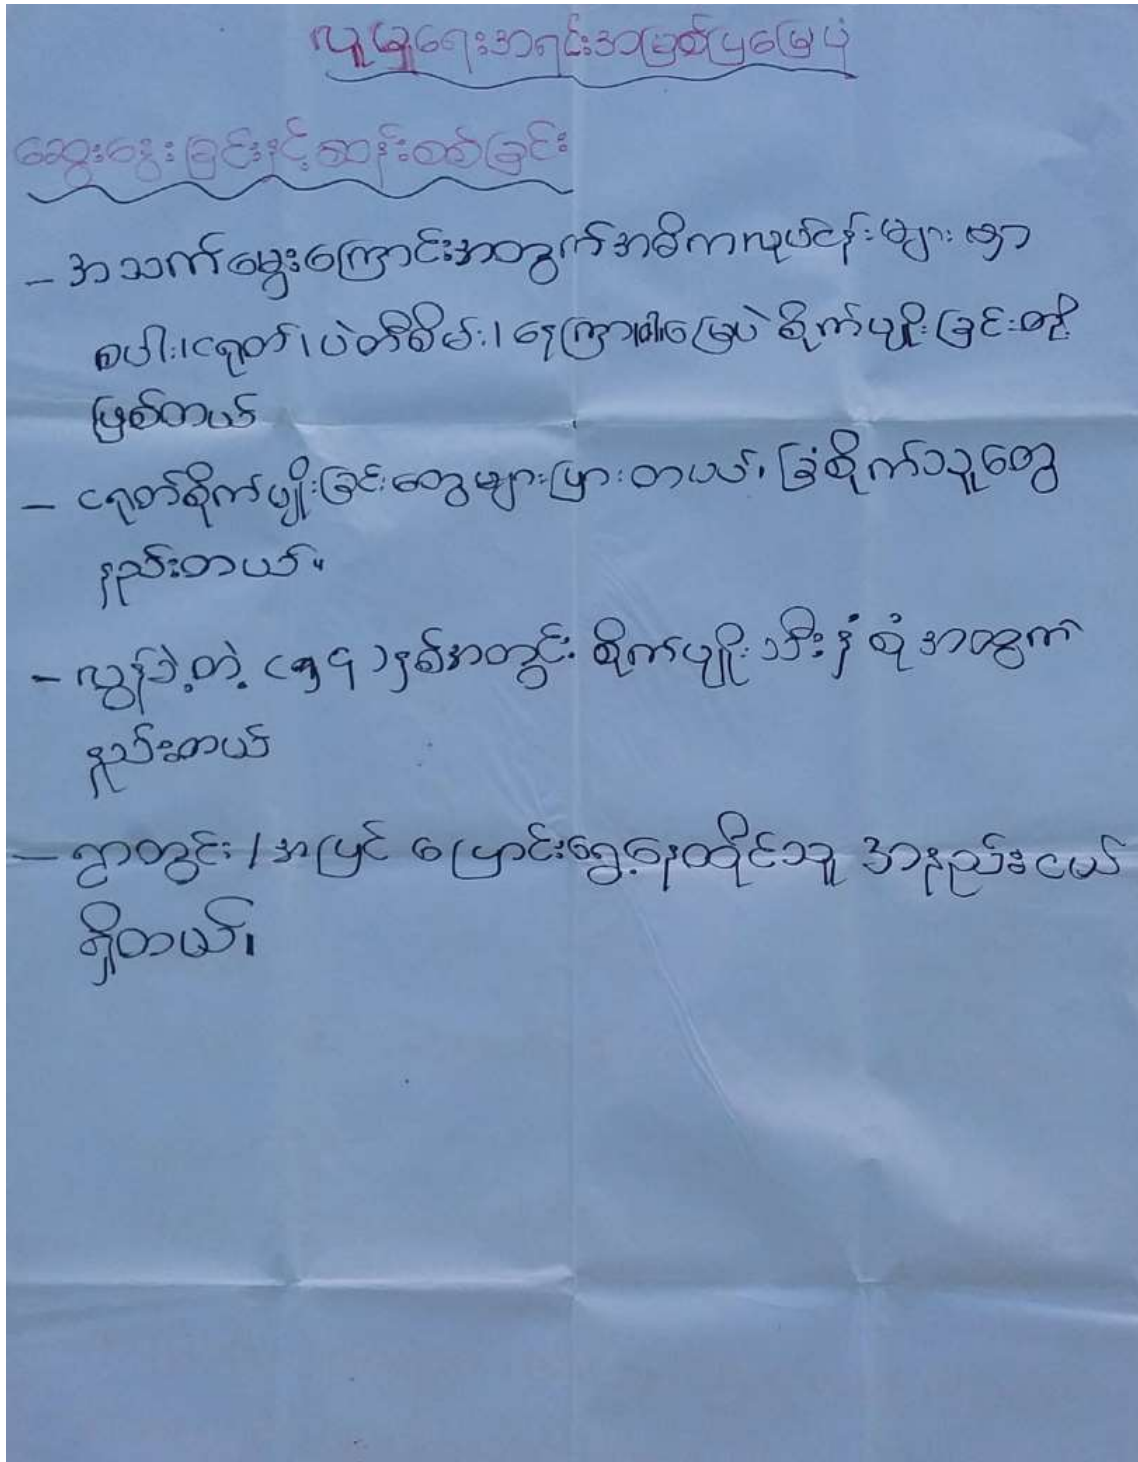 လူမှုရေးအရင်းအမြစ်ပြမြေပုံ
ဆွေးနွေးခြင်းနှင့်ဆန်းစစ်ခြင်း
– အသက်မွေးကြောင်းအတွက်အဓိကလုပ်ငန်းများမှာ
စပါး၊ငရုတ်၊ပဲတီစိမ်း၊နေကြာ၊ဝါ၊မြေပဲ စိုက်ပျိုးခြင်းတို့
ဖြစ်တယ်
– ငရုတ်စိုက်ပျိုးခြင်းတွေများပြားတယ်၊ ခြံစိုက်သူတွေ
နည်းတယ်။
– လွန်ခဲ့တဲ့ (၅)နှစ်အတွင်း စိုက်ပျိုးသီးနှံ ရုံ အတွက်
နည်းတယ်
– ရွာတွင်း/အပြင် ပြောင်းရွှေ့နေထိုင်သူ အနည်းငယ်
ရှိတယ်၊